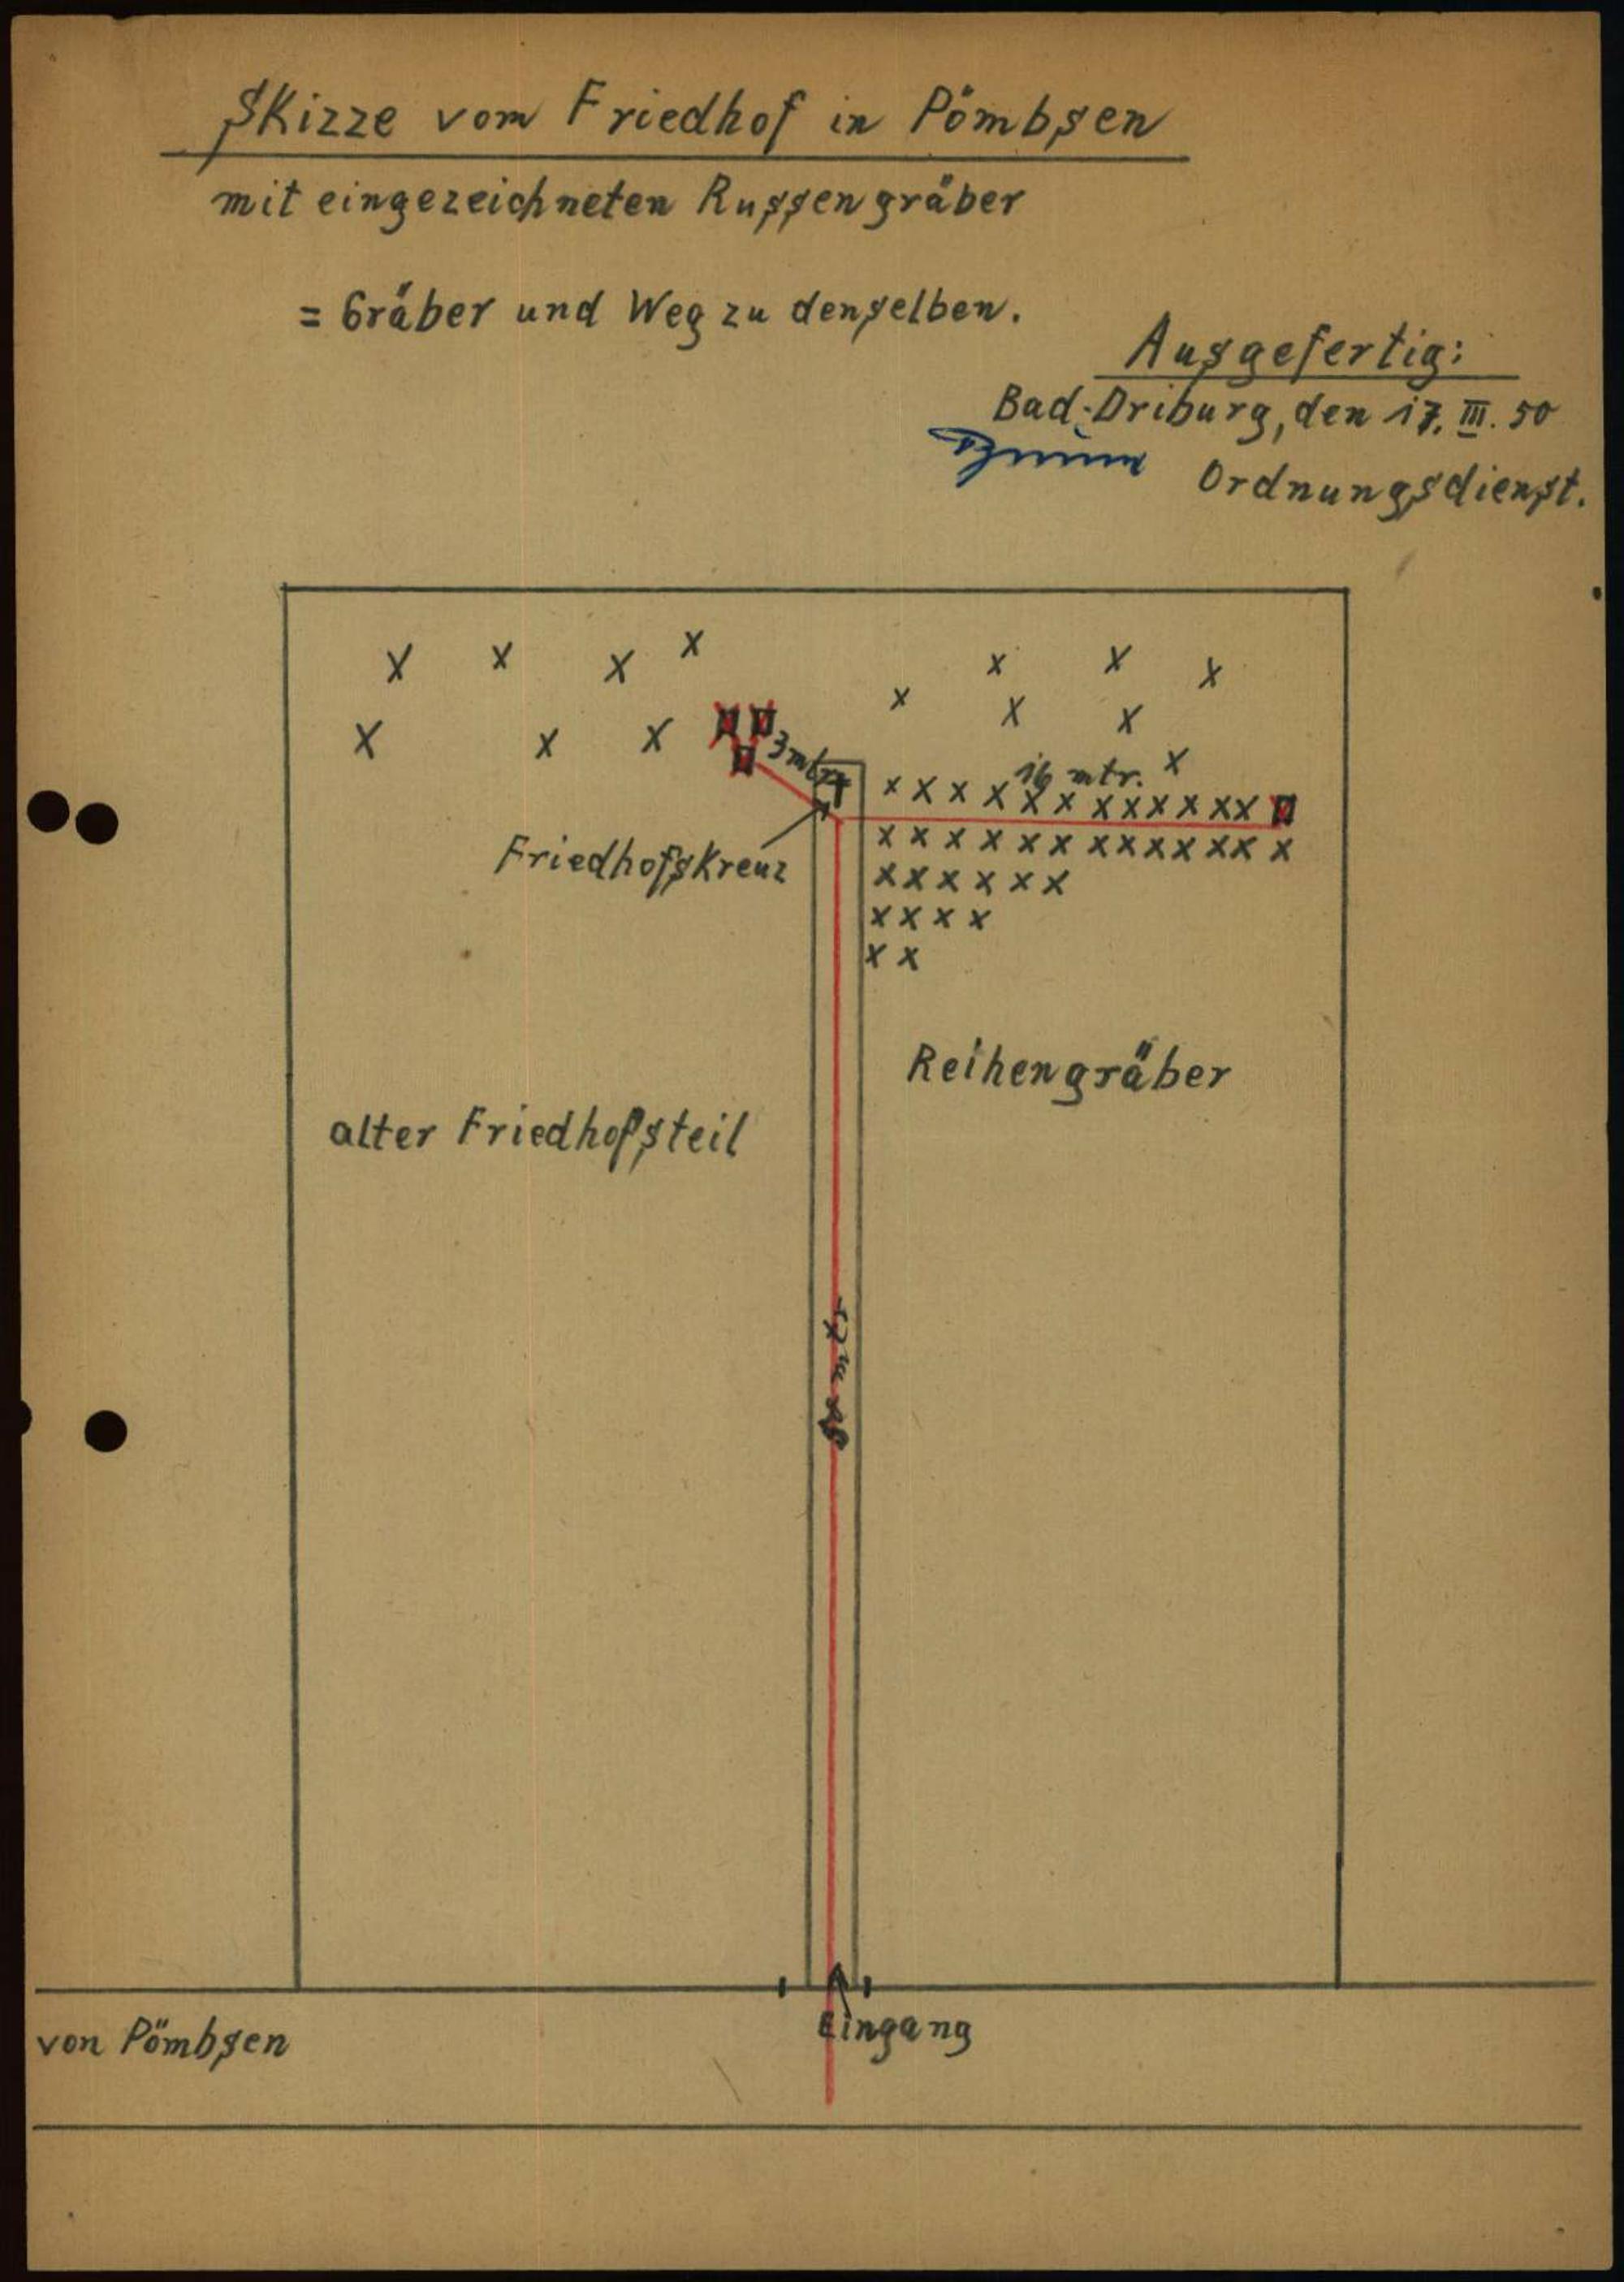 Skizze vom Friedhof in Pömbsen
mit eingezeichneten Russengräber
= Gräber und Weg zu denselben.
Ausgefertig:
Bad-Driburg, den 17. III. 50
Ordnungsdienst.
3 mtr.
16 mtr.
Friedhofskreuz
Reihengräber
alter Friedhofsteil
mtr
von Pömbsen
Eingang